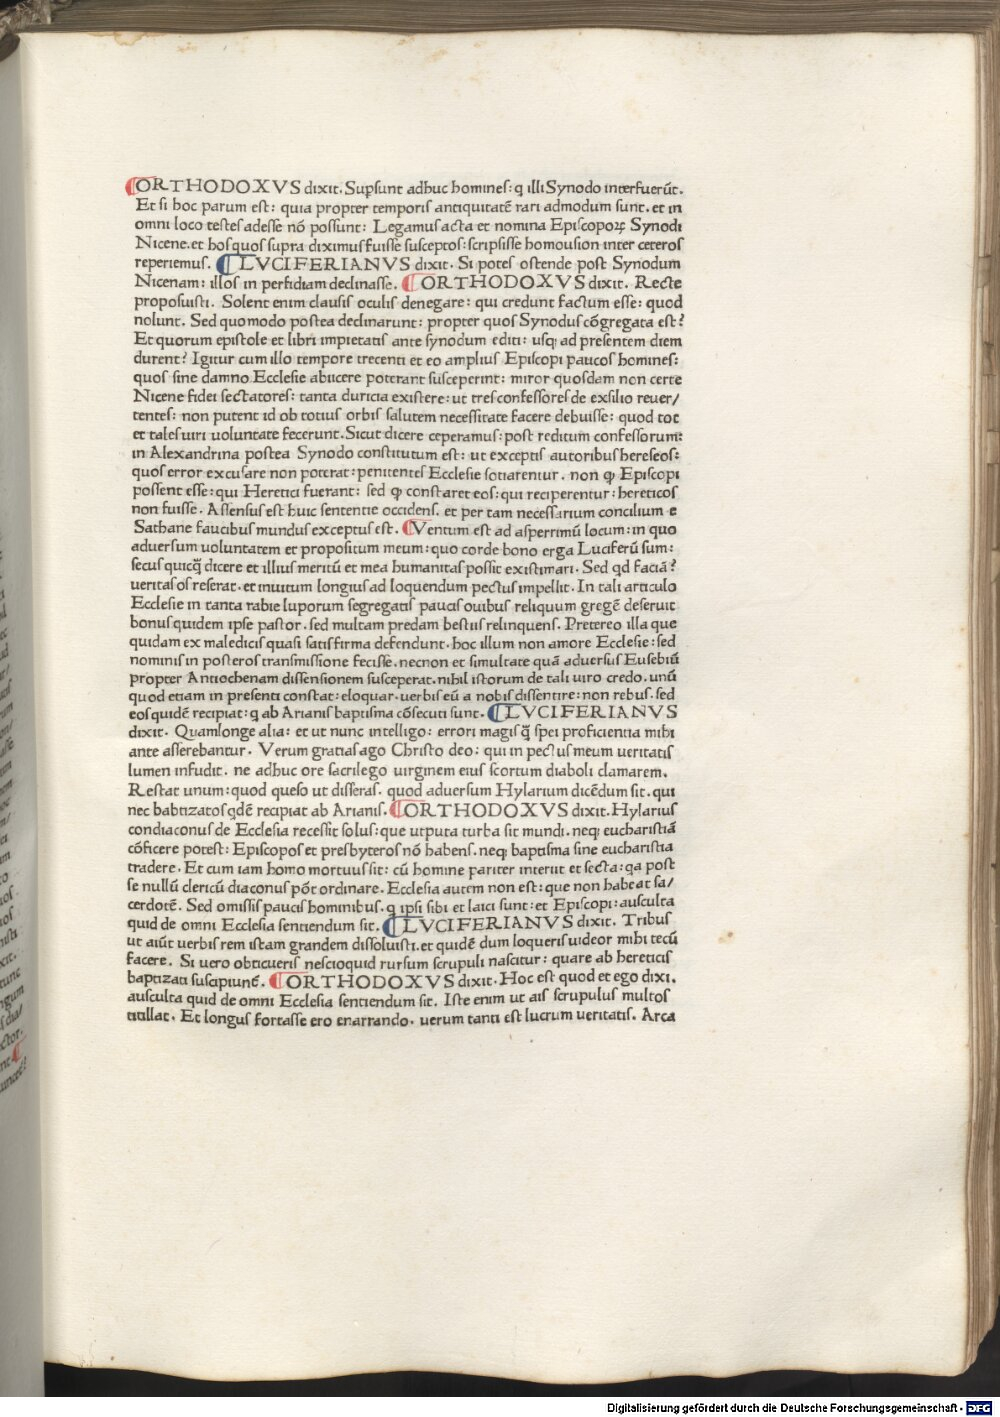 ¶ORTHODOXVS dixit. Suꝑsunt adhuc homines: q̇ illi Synodo interfuerūt.
Et si hoc parum est: quia propter temporis antiquitatē rari admodum sunt. et in
omni loco testes adesse nō possunt: Legamus acta et nomina Episcoporꝝ Synodi
Nicene. et hos quos supra diximus fuisse susceptos: scripsisse homousion inter ceteros
reperiemus. ¶LVCIFERIANVS dixit. Si potes ostende post Synodum
Nicenam: illos in perfidiam declinasse. ¶ORTHODOXVS dixit. Recte
proposuisti. Solent enim clausis oculis denegare: qui credunt factum esse: quod
nolunt. Sed quomodo postea declinarunt: propter quos Synodus cōgregata est?
Et quorum epistole et libri impietatis ante synodum editi: usq; ad presentem diem
durent? Igitur cum illo tempore trecenti et eo amplius Episcopi paucos homines:
quos sine damno Ecclesie abiicere poterant susceperint: miror quosdam non certe
Nicene fidei sectatores: tanta duricia existere: ut tres confessores de exsilio reuer/
tentes: non putent id ob totius orbis salutem necessitate facere debuisse: quod tot
et tales uiri uoluntate fecerunt. Sicut dicere ceperamus: post reditum confessorum:
in Alexandrina postea Synodo constitutum est: ut exceptis autoribus hereseos:
quos error excusare non poterat: penitentes Ecclesie sotiarentur. non ꝙ Episcopi
possent esse: qui Heretici fuerant: sed ꝙ constaret eos: qui reciperentur: hereticos
non fuisse. Assensus est huic sententie occidens. et per tam necessarium concilium e
Sathane faucibus mundus exceptus est. ¶Ventum est ad asperrimū locum: in quo
aduersum uoluntatem et propositum meum: quo corde bono erga Luciferū sum:
secus quicq̄ dicere et illius meritū et mea humanitas possit existimari. Sed qd faciā?
ueritas os reserat. et inuitum longius ad loquendum pectus impellit. In tali articulo
Ecclesie in tanta rabie luporum segregatis paucis ouibus reliquum gregē deseruit
bonus quidem ipse pastor. sed multam predam bestiis relinquens. Pretereo illa que
quidam ex maledicis quasi satis firma defendunt. hoc illum non amore Ecclesie: sed
nominis in posteros transmissione fecisse. necnon et simultate quā aduersus Eusebiū
propter Antiochenam dissensionem susceperat. nihil istorum de tali uiro credo. unū
quod etiam in presenti constat: eloquar. uerbis eū a nobis dissentire: non rebus. sed
eos quidē recipiat: q̇ ab Arianis baptisma cōsecuti sunt. ¶LVCIFERIANVS
dixit. Quam longe alia: et ut nunc intelligo: errori magis q̄ spei proficientia mihi
ante asserebantur. Verum gratias ago Christo deo: qui in pectus meum ueritatis
lumen infudit. ne adhuc ore sacrilego uirginem eius scortum diaboli clamarem.
Restat unum: quod queso ut disseras. quod aduersum Hylarium dicēdum sit. qui
nec babtizatos qdē recipiat ab Arianis. ¶ORTHODOXVS dixit. Hylarius
condiaconus de Ecclesia recessit solus: que utputa turba sit mundi. neq; eucharistiā
cōficere potest: Episcopos et presbyteros nō habens. neq; baptisma sine eucharistia
tradere. Et cum iam homo mortuus sit: cū homine pariter interiit et secta: qa post
se nullū clericū diaconus pōt ordinare. Ecclesia autem non est: que non habeat sa/
cerdotē. Sed omissis paucis hominibus. q̇ ipsi sibi et laici sunt: et Episcopi: ausculta
quid de omni Ecclesia sentiendum sit. ¶LVCIFERIANVS dixit. Tribus
ut aiūt uerbis rem istam grandem dissoluisti. et quidē dum loqueris uideor mihi tecū
facere. Si uero obticueris nescioquid rursum scrupuli nascitur: quare ab hereticis
baptizati suscipiunt̄. ¶ORTHODOXVS dixit. Hoc est quod et ego dixi.
ausculta quid de omni Ecclesia sentiendum sit. Iste enim ut ais scrupulus multos
titillat. Et longus fortasse ero enarrando. uerum tanti est lucrum ueritatis. Arca
Digitalisierung gefördert durch die Deutsche Forschungsgemeinschaft - DFG